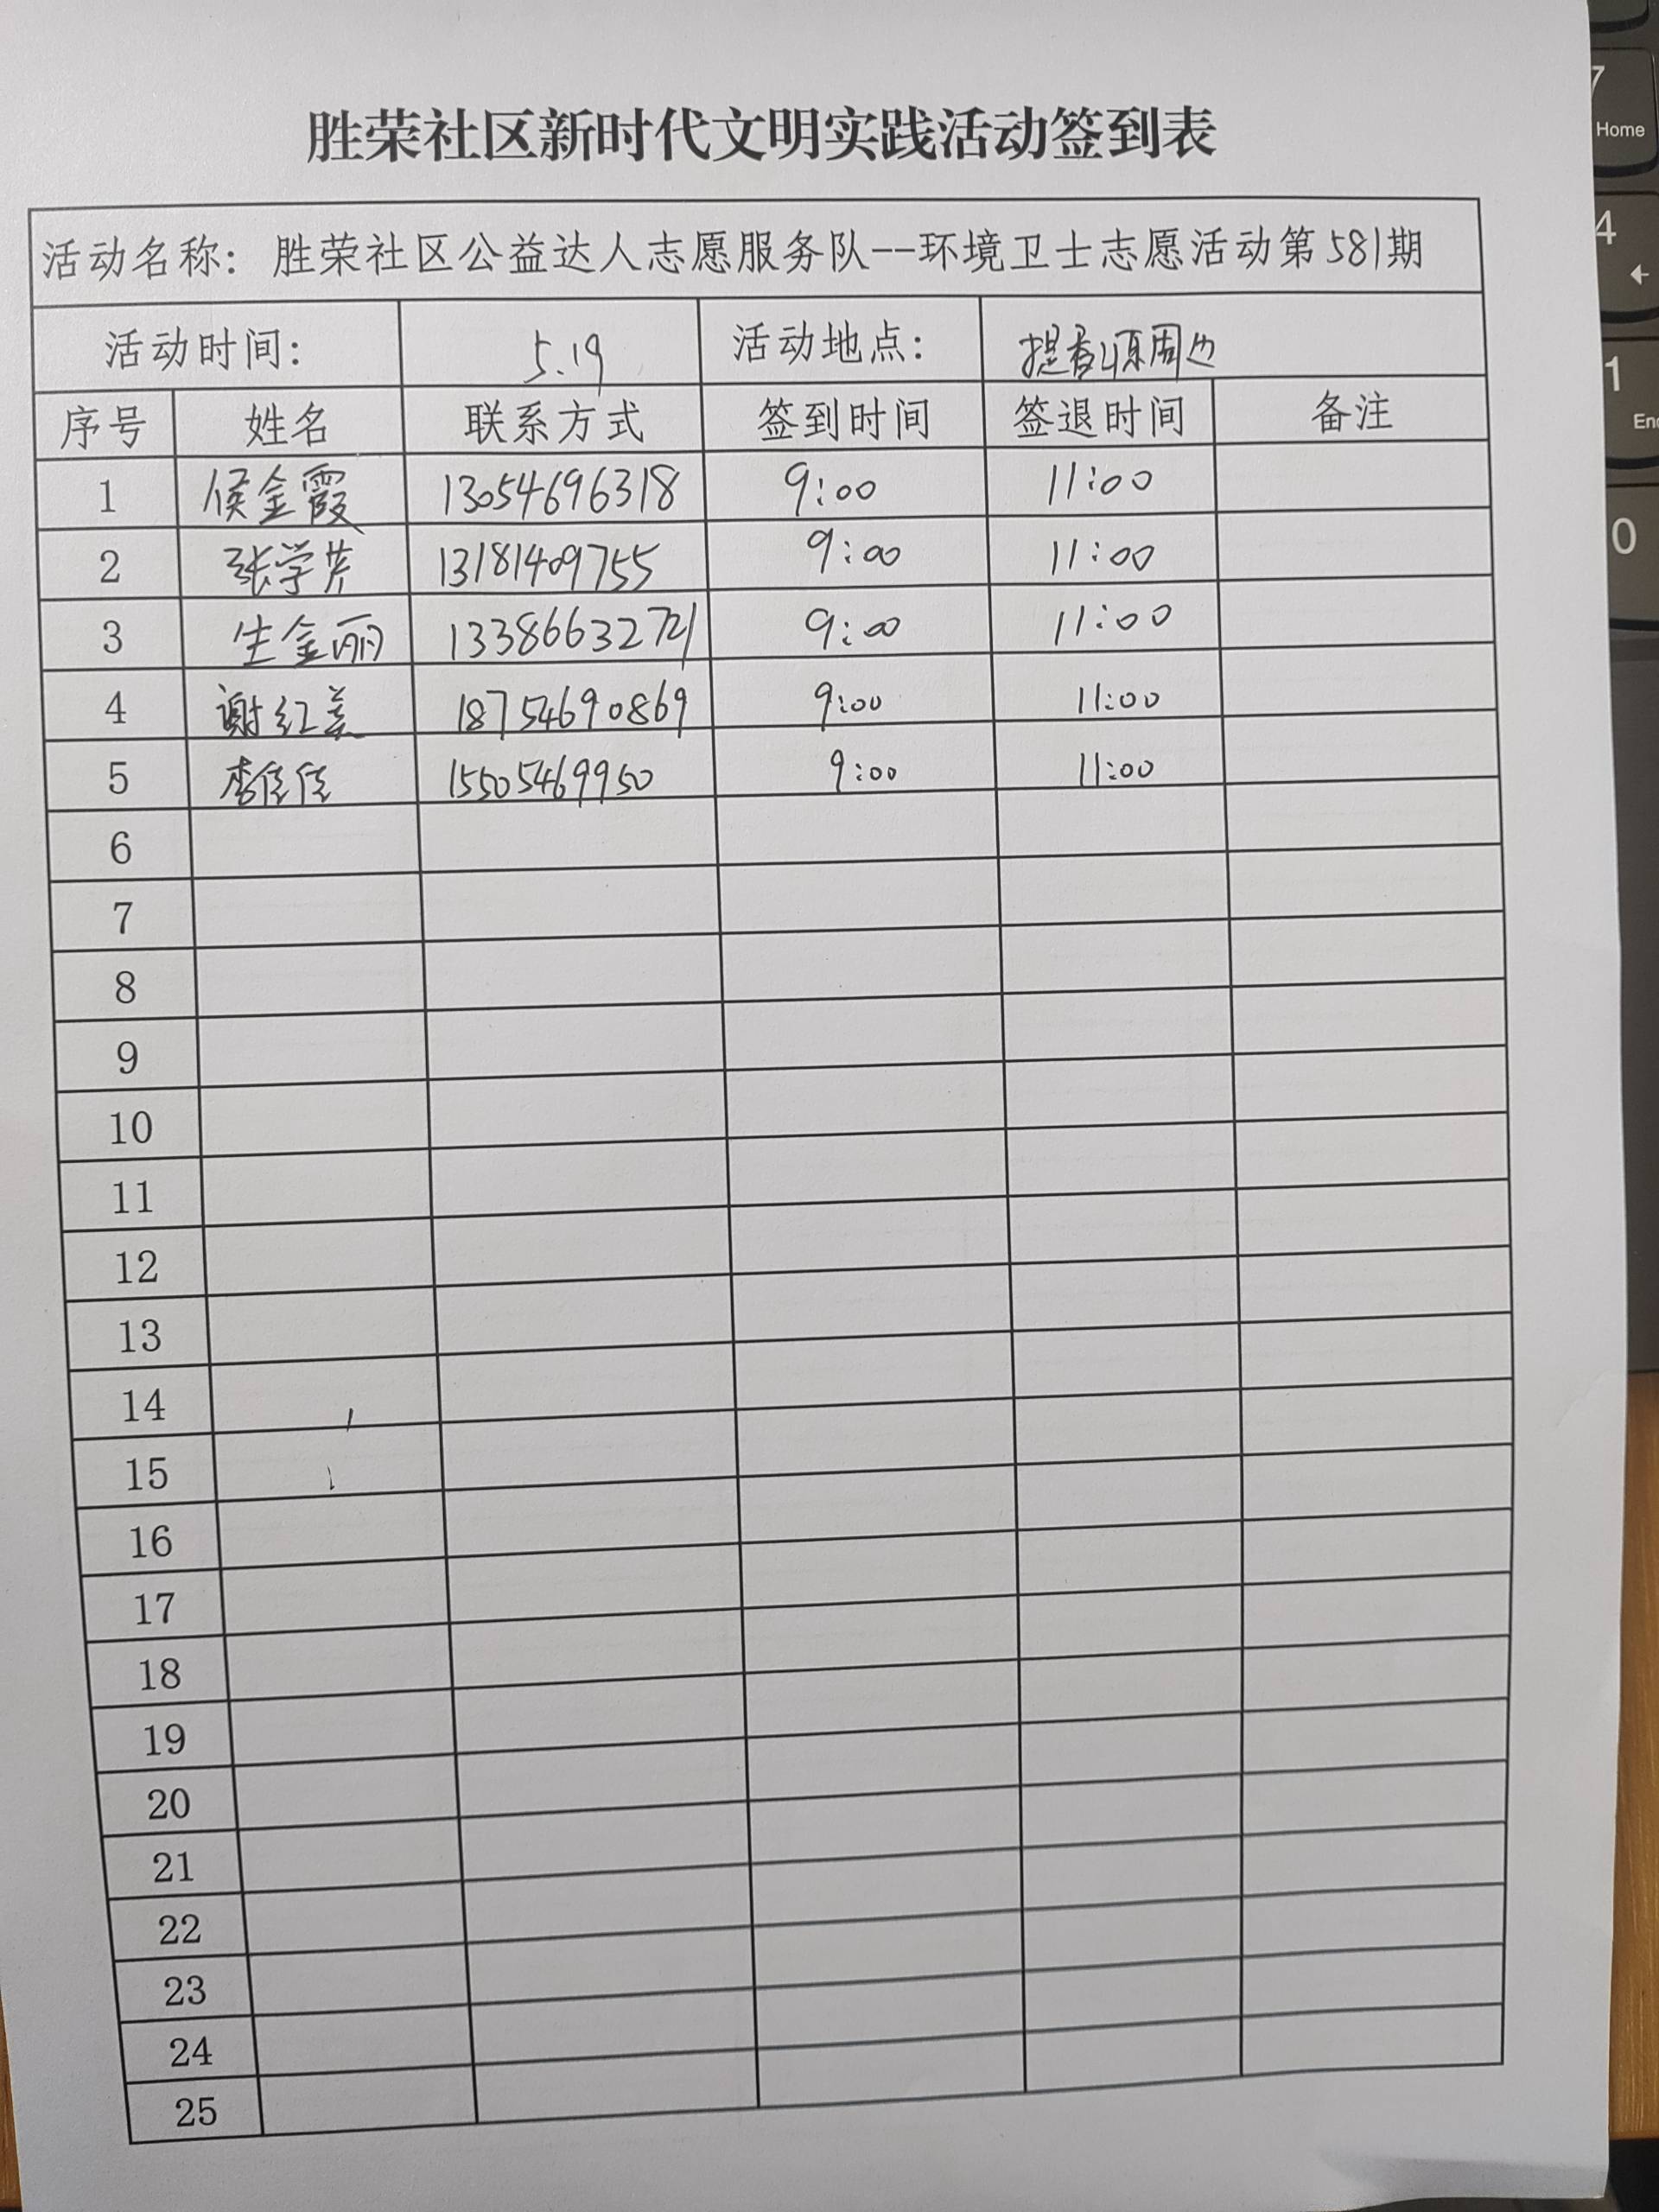 胜荣社区新时代文明实践活动签到表
活动名称：胜荣社区公益达人志愿服务队--环境卫士志愿活动第581期
活动时间： 5.19 活动地点： 提香源周边
序号 姓名 联系方式 签到时间 签退时间 备注
1 侯金霞 13054696318 9:00 11:00
2 张学芹 13181409755 9:00 11:00
3 生金丽 13386632721 9:00 11:00
4 谢红美 18754690869 9:00 11:00
5 李佳佳 15505469950 9:00 11:00
6
7
8
9
10
11
12
13
14
15
16
17
18
19
20
21
22
23
24
25
7
Home
4
←
1
End
0